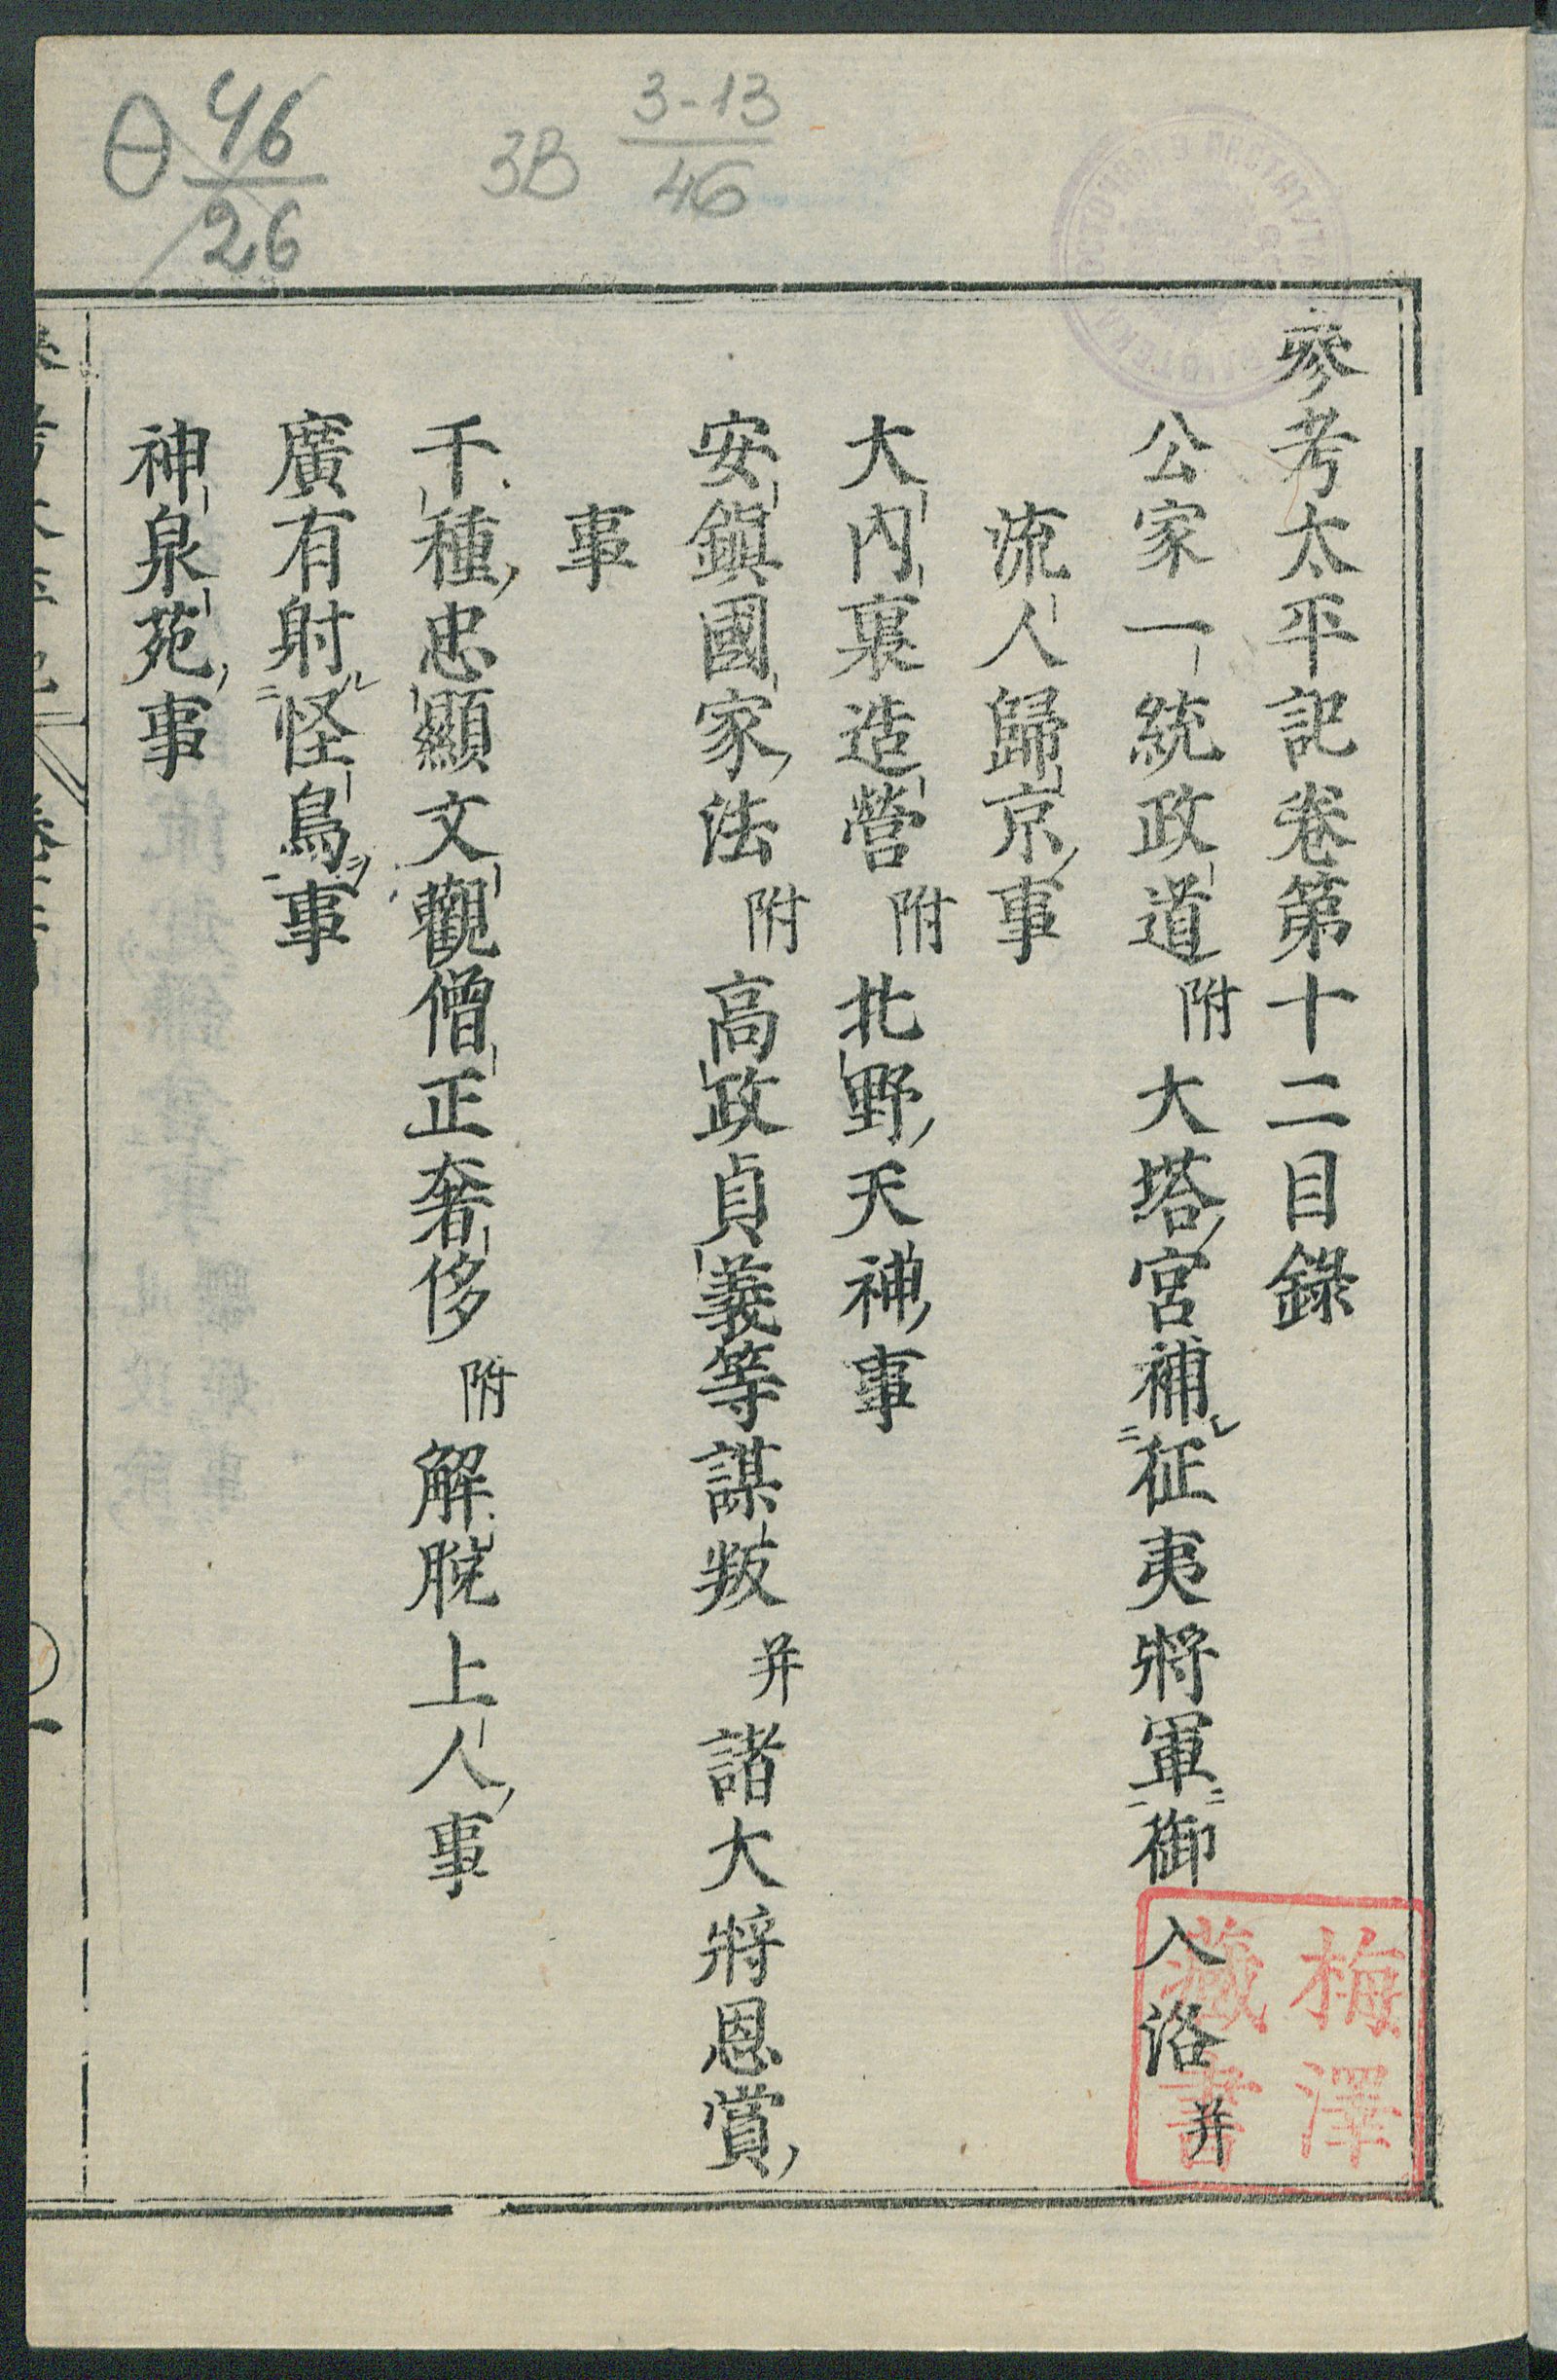 Θ 46/26
3B 3-13/46
參考太平記卷第十二目錄
公家一統政道附大塔宮補征夷將軍御入洛并
流人歸京事
大內裏造營附北野天神事
安鎭國家法附高政貞義等謀叛并諸大將恩賞
事
千種忠顯文觀僧正奢侈附解脫上人事
廣有射怪鳥事
神泉苑事
梅澤
藏書